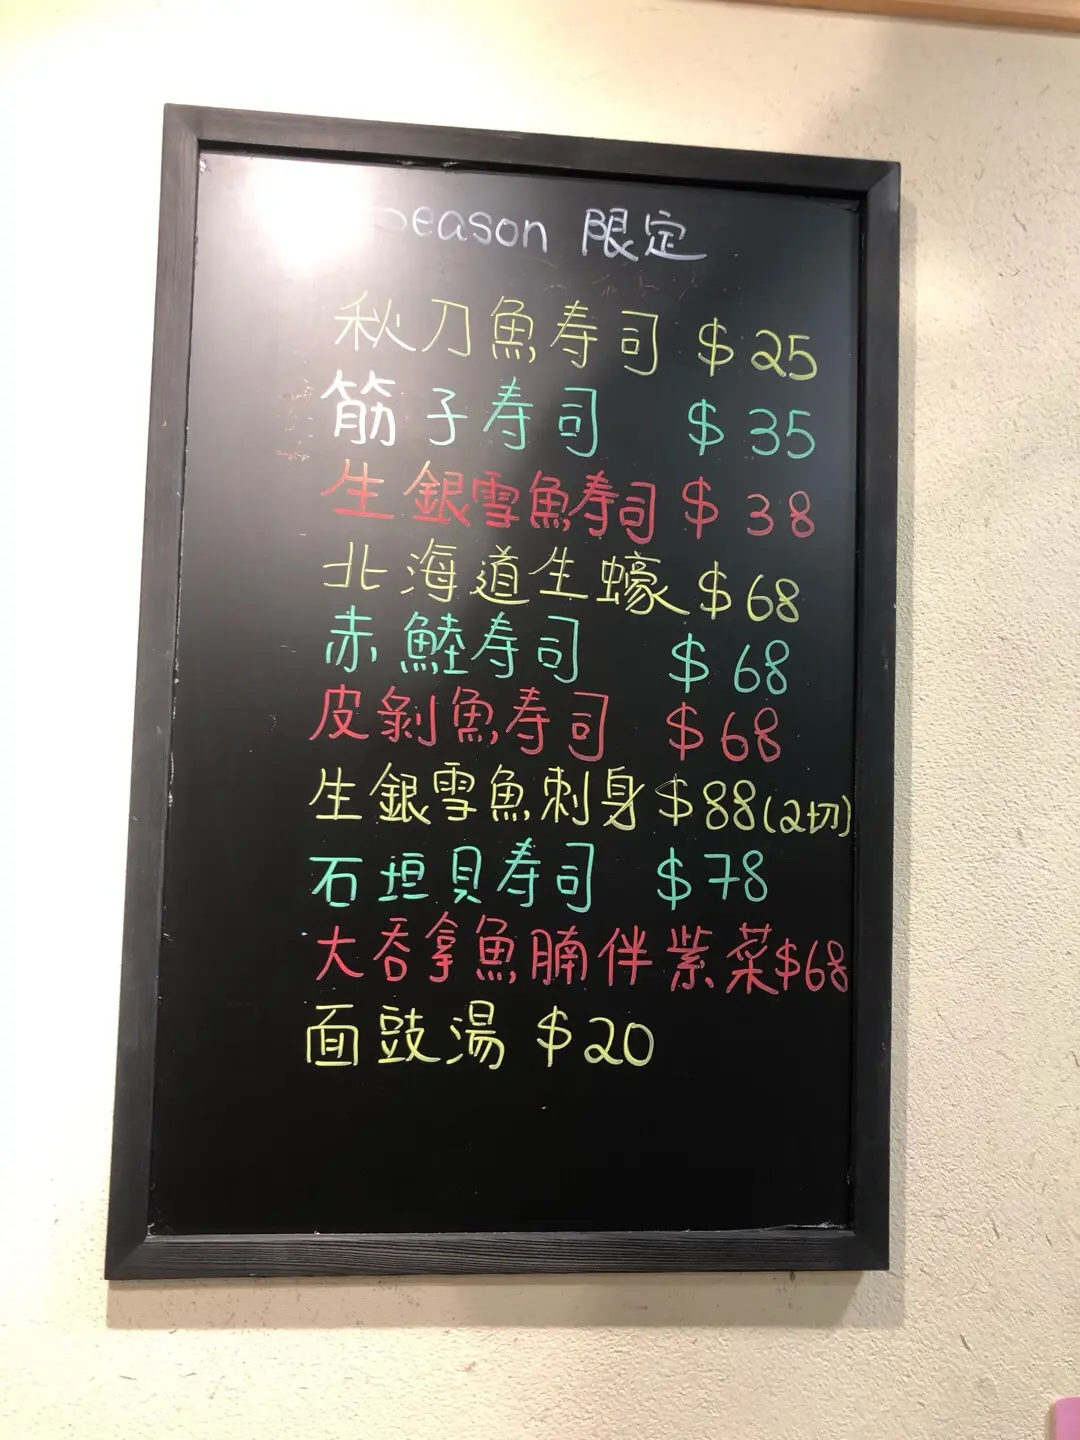 Season 限定
秋刀魚寿司 $25
筋子寿司 $35
生銀雪魚寿司 $38
北海道生蠔 $68
赤鯥寿司 $68
皮剝魚寿司 $68
生銀雪魚刺身 $88(2切)
石垣貝寿司 $78
大吞拿魚腩伴紫菜 $68
面豉湯 $20